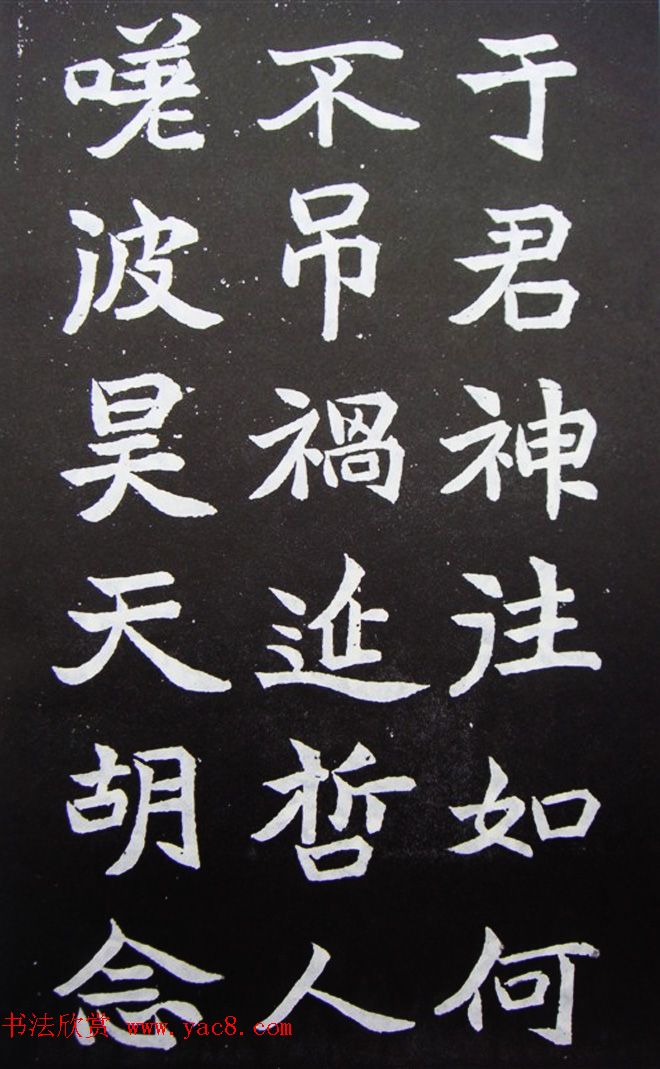 于君神往如何
不吊禍延哲人
嗟彼昊天胡念
书法欣赏 www.yac8.com